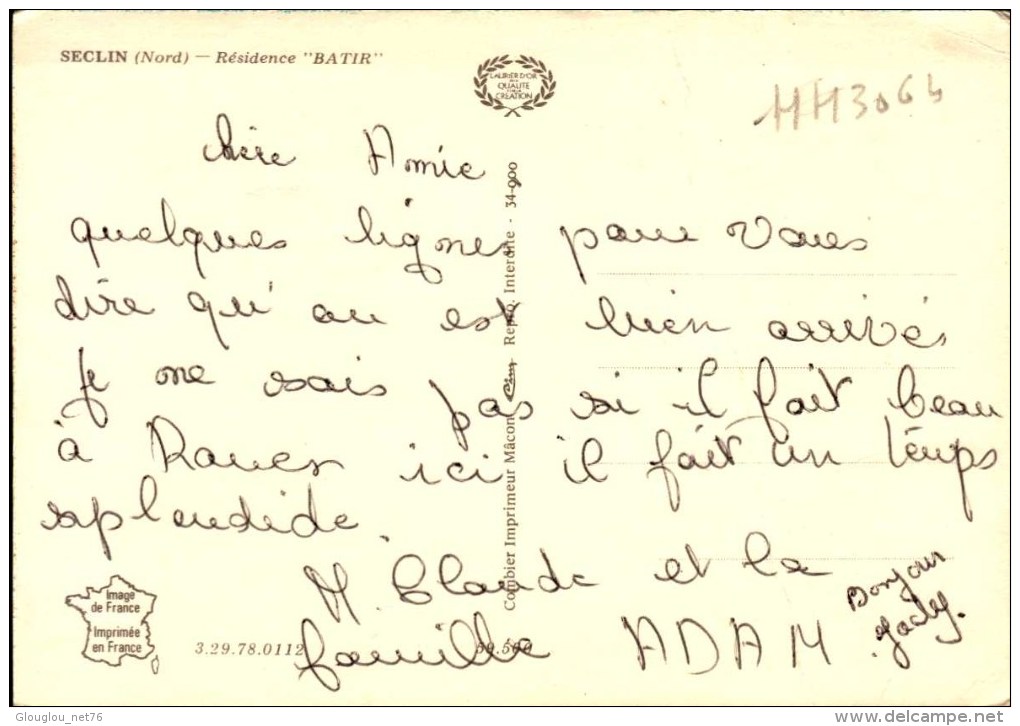 SECLIN (Nord) — Résidence "BATIR"
LAURIER D'OR
QUALITÉ
CRÉATION
HH3064
chère Annie
quelques lignes pour vous
dire qu'on est bien arrivés
je ne sais pas si il fait beau
à Rouen ici il fait un temps
splendide
M. Claude et la
famille ADAM
Bonjour
Jacky.
Combier Imprimeur Mâcon Cim Reprod. Interdite - 34-900
Image
de France
Imprimée
en France
3.29.78.0112
59.560
Glouglou_net76
www.delcampe.net